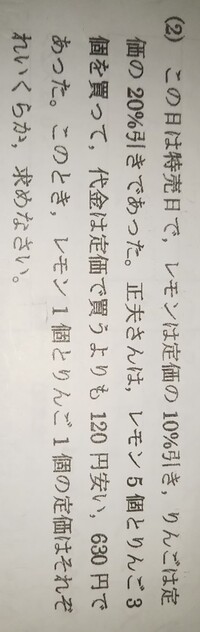 (2) この日は特売日で，レモンは定価の10%引き，りんごは定
価の20%引きであった。正夫さんは，レモン5個とりんご3
個を買って，代金は定価で買うよりも120円安い，630円で
あった。このとき，レモン1個とりんご1個の定価はそれぞ
れいくらか，求めなさい。